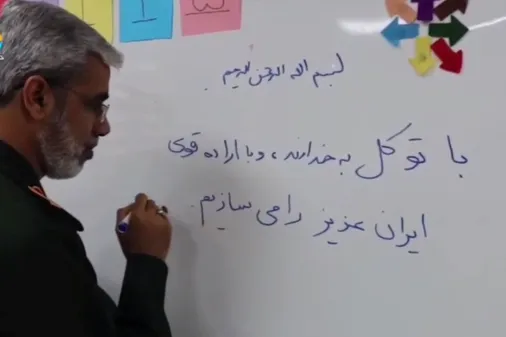 بسم الله الرحمن الرحیم.
با توکل به خداوند، و با اراده قوی
ایران عزیز را می سازیم.